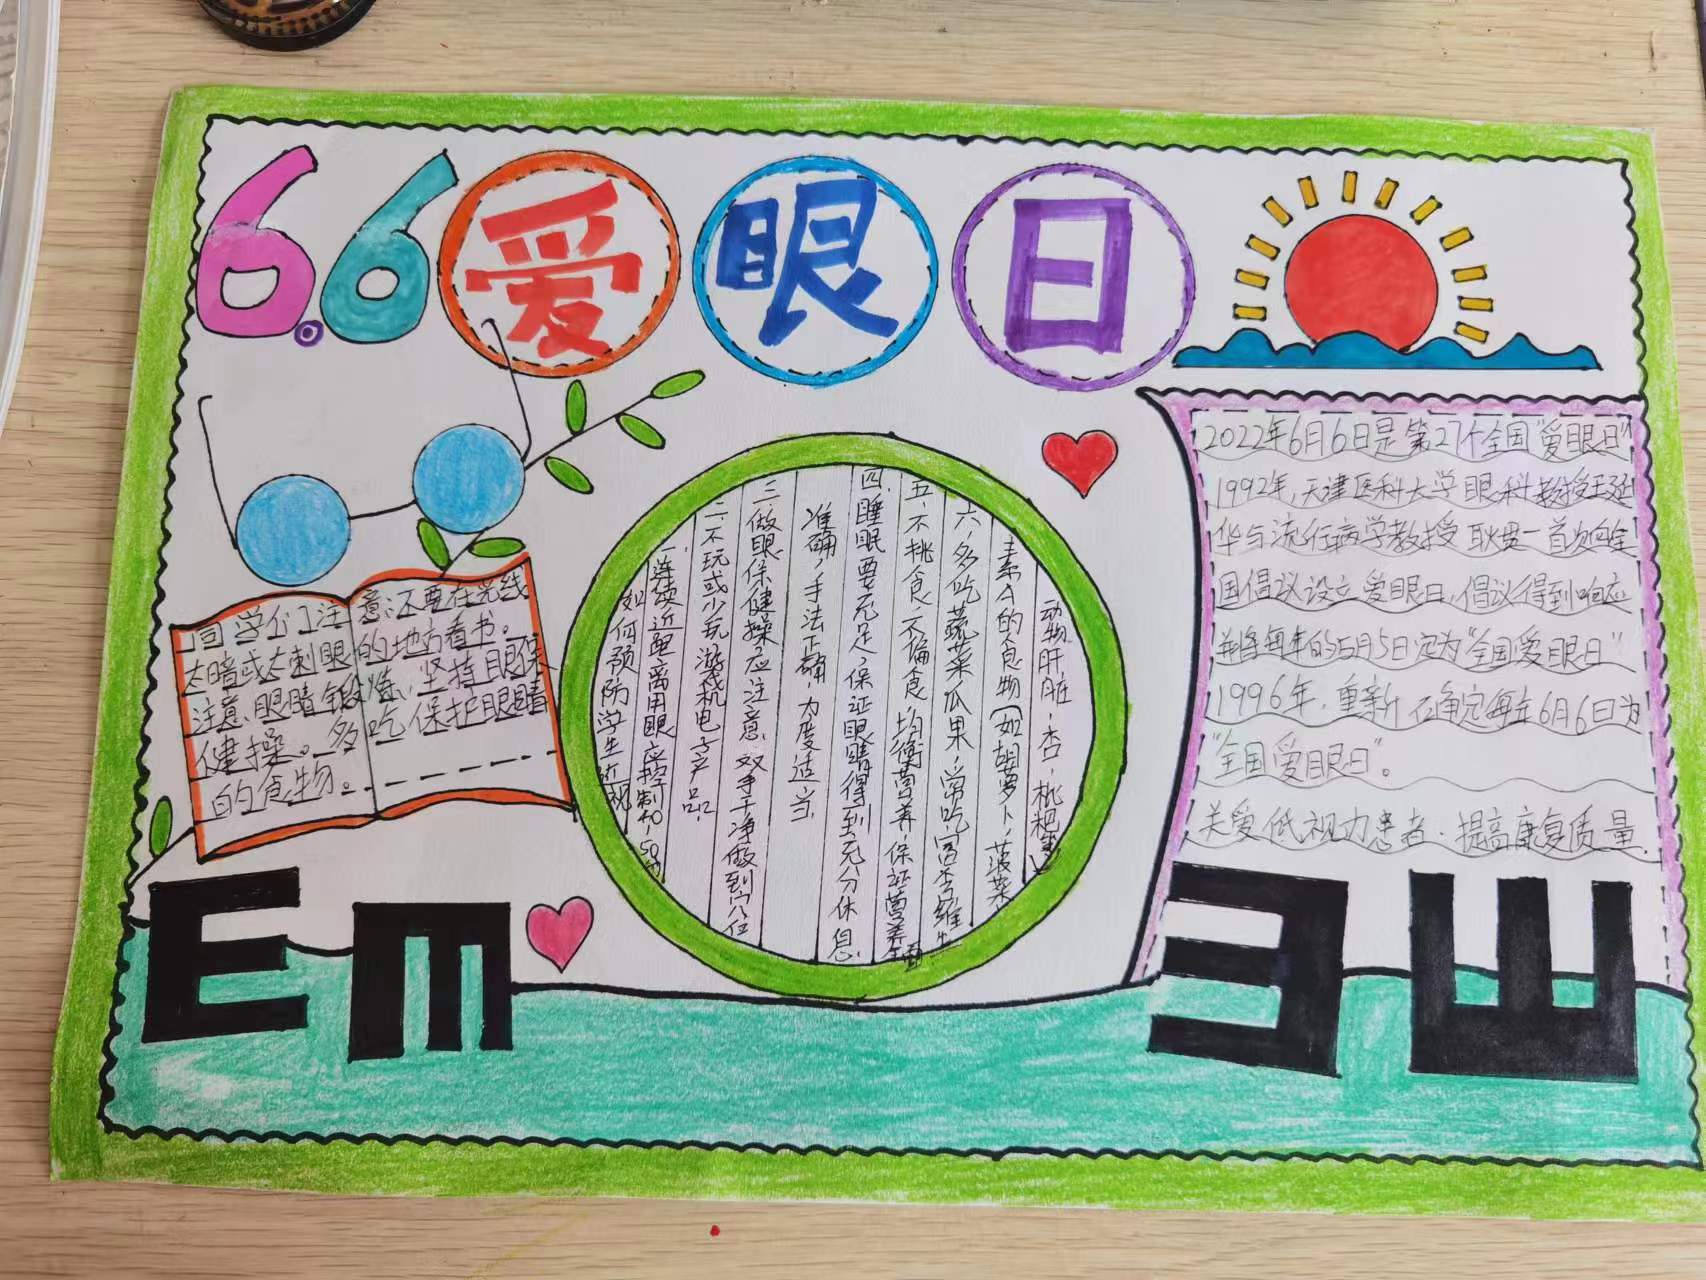 6.6爱眼日
同学们注意:不要在光线
太暗或太刺眼的地方看书。
注意眼睛锻炼,坚持眼保
健操。多吃保护眼睛
的食物。
如何预防学生近视
一、连续近距离用眼应控制40-50分
二、不玩或少玩游戏机电子产品
三、做眼保健操应注意 双手干净做到穴位
准确,手法正确,力度适当
四、睡眠要充足,保证眼睛得到充分休息.
五、不挑食、不偏食,均衡营养保证营养全面
六、多吃蔬菜瓜果,常吃富含维生
素A的食物(如胡萝卜,菠菜
动物肝脏,杏,枇杷等)
2022年6月6日是第27个全国"爱眼日"
1992年,天津医科大学眼科教授王延
华与流行病学教授耿贯一首次向全
国倡议设立爱眼日,倡议得到响应
并将每年的5月5日定为"全国爱眼日"
1996年,重新确定每年6月6日为
"全国爱眼日"。
关爱低视力患者,提高康复质量.
E m Ǝ Ш